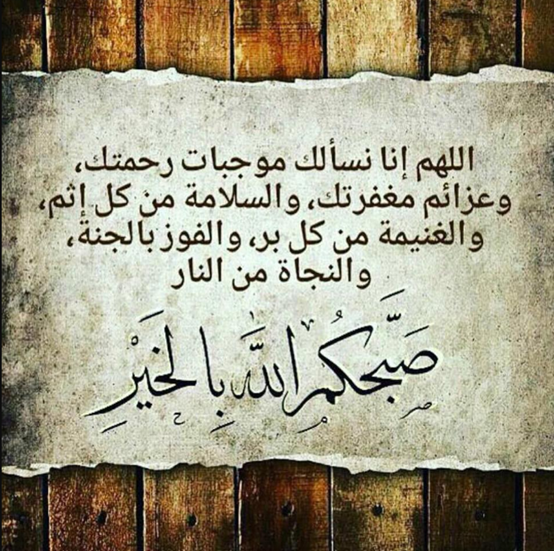 اللهم إنا نسألك موجبات رحمتك،
وعزائم مغفرتك، والسلامة من كل إثم،
والغنيمة من كل بر، والفوز بالجنة،
والنجاة من النار
صَبَّحَكُم اللَّه بِالخَيْرِ